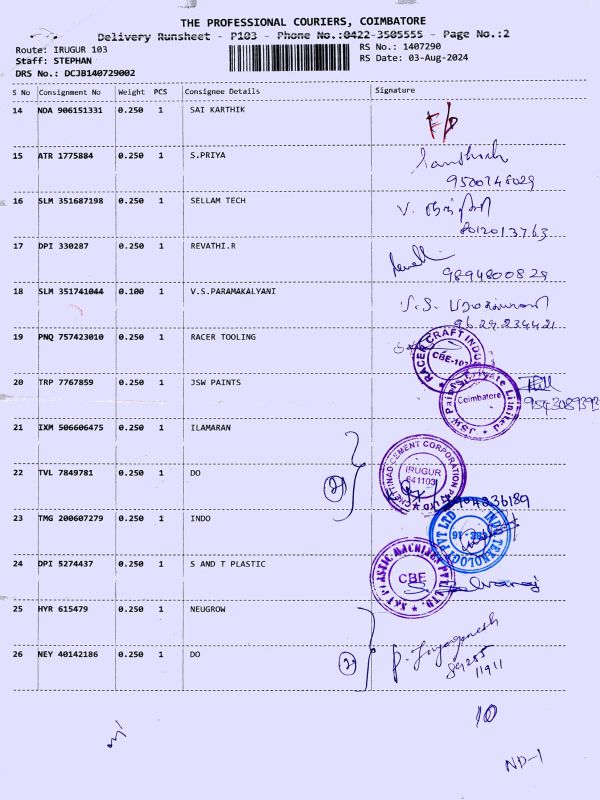 THE PROFESSIONAL COURIERS, COIMBATORE
Delivery Runsheet - P103 - Phone No.:0422-3505555 - Page No.:2
Route: IRUGUR 103
RS No.: 1407290
Staff: STEPHAN
RS Date: 03-Aug-2024
DRS No.: DCJB140729002
S No Consignment No Weight PCS Consignee Details Signature
14 NDA 906151331 0.250 1 SAI KARTHIK
15 ATR 1775884 0.250 1 S.PRIYA
16 SLM 351687198 0.250 1 SELLAM TECH
V.
8012013763
17 DPI 330287 0.250 1 REVATHI.R
9894800829
18 SLM 351741044 0.100 1 V.S.PARAMAKALYANI
9629234421
19 PNQ 757423010 0.250 1 RACER TOOLING
RACER CRAFT INDUS
CBE-103
20 TRP 7767859 0.250 1 JSW PAINTS
JSW Paints Private Limited
Coimbatore
21 IXM 506606475 0.250 1 ILAMARAN
CHETTINAD CEMENT CORPORATION
IRUGUR
641103
22 TVL 7849781 0.250 1 DO
2
23 TMG 200607279 0.250 1 INDO
INDO TEKNOLOGY PVT LTD
24 DPI 5274437 0.250 1 S AND T PLASTIC
S&T PLASTIC MACHINES PVT. LTD.
CBE
25 HYR 615479 0.250 1 NEUGROW
26 NEY 40142186 0.250 1 DO
2
89255
11911
10
ND-1